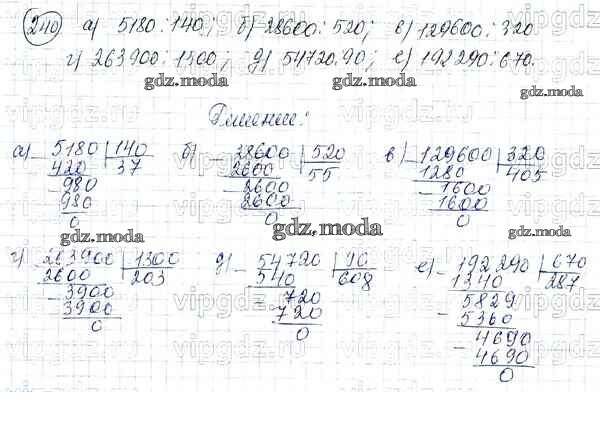 240 а) 5180 : 140; б) 28600 : 520; в) 129600 : 320
г) 263900 : 1300; д) 54720 : 90; е) 192290 : 670.
gdz.moda gdz.moda
Решение:
а) - 5180 | 140 б) - 28600 | 520 в) - 129600 | 320
420 37 2600 55 1280 405
- 980 - 2600 - 1600
980 2600 1600
0 0 0
gdz.moda gdz.moda gdz.moda
г) - 263900 | 1300 д) - 54720 | 90 е) - 192290 | 670
2600 203 540 608 1340 287
- 3900 - 720 - 5829
3900 720 5360
0 0 - 4690
4690
0
gdz.moda gdz.moda